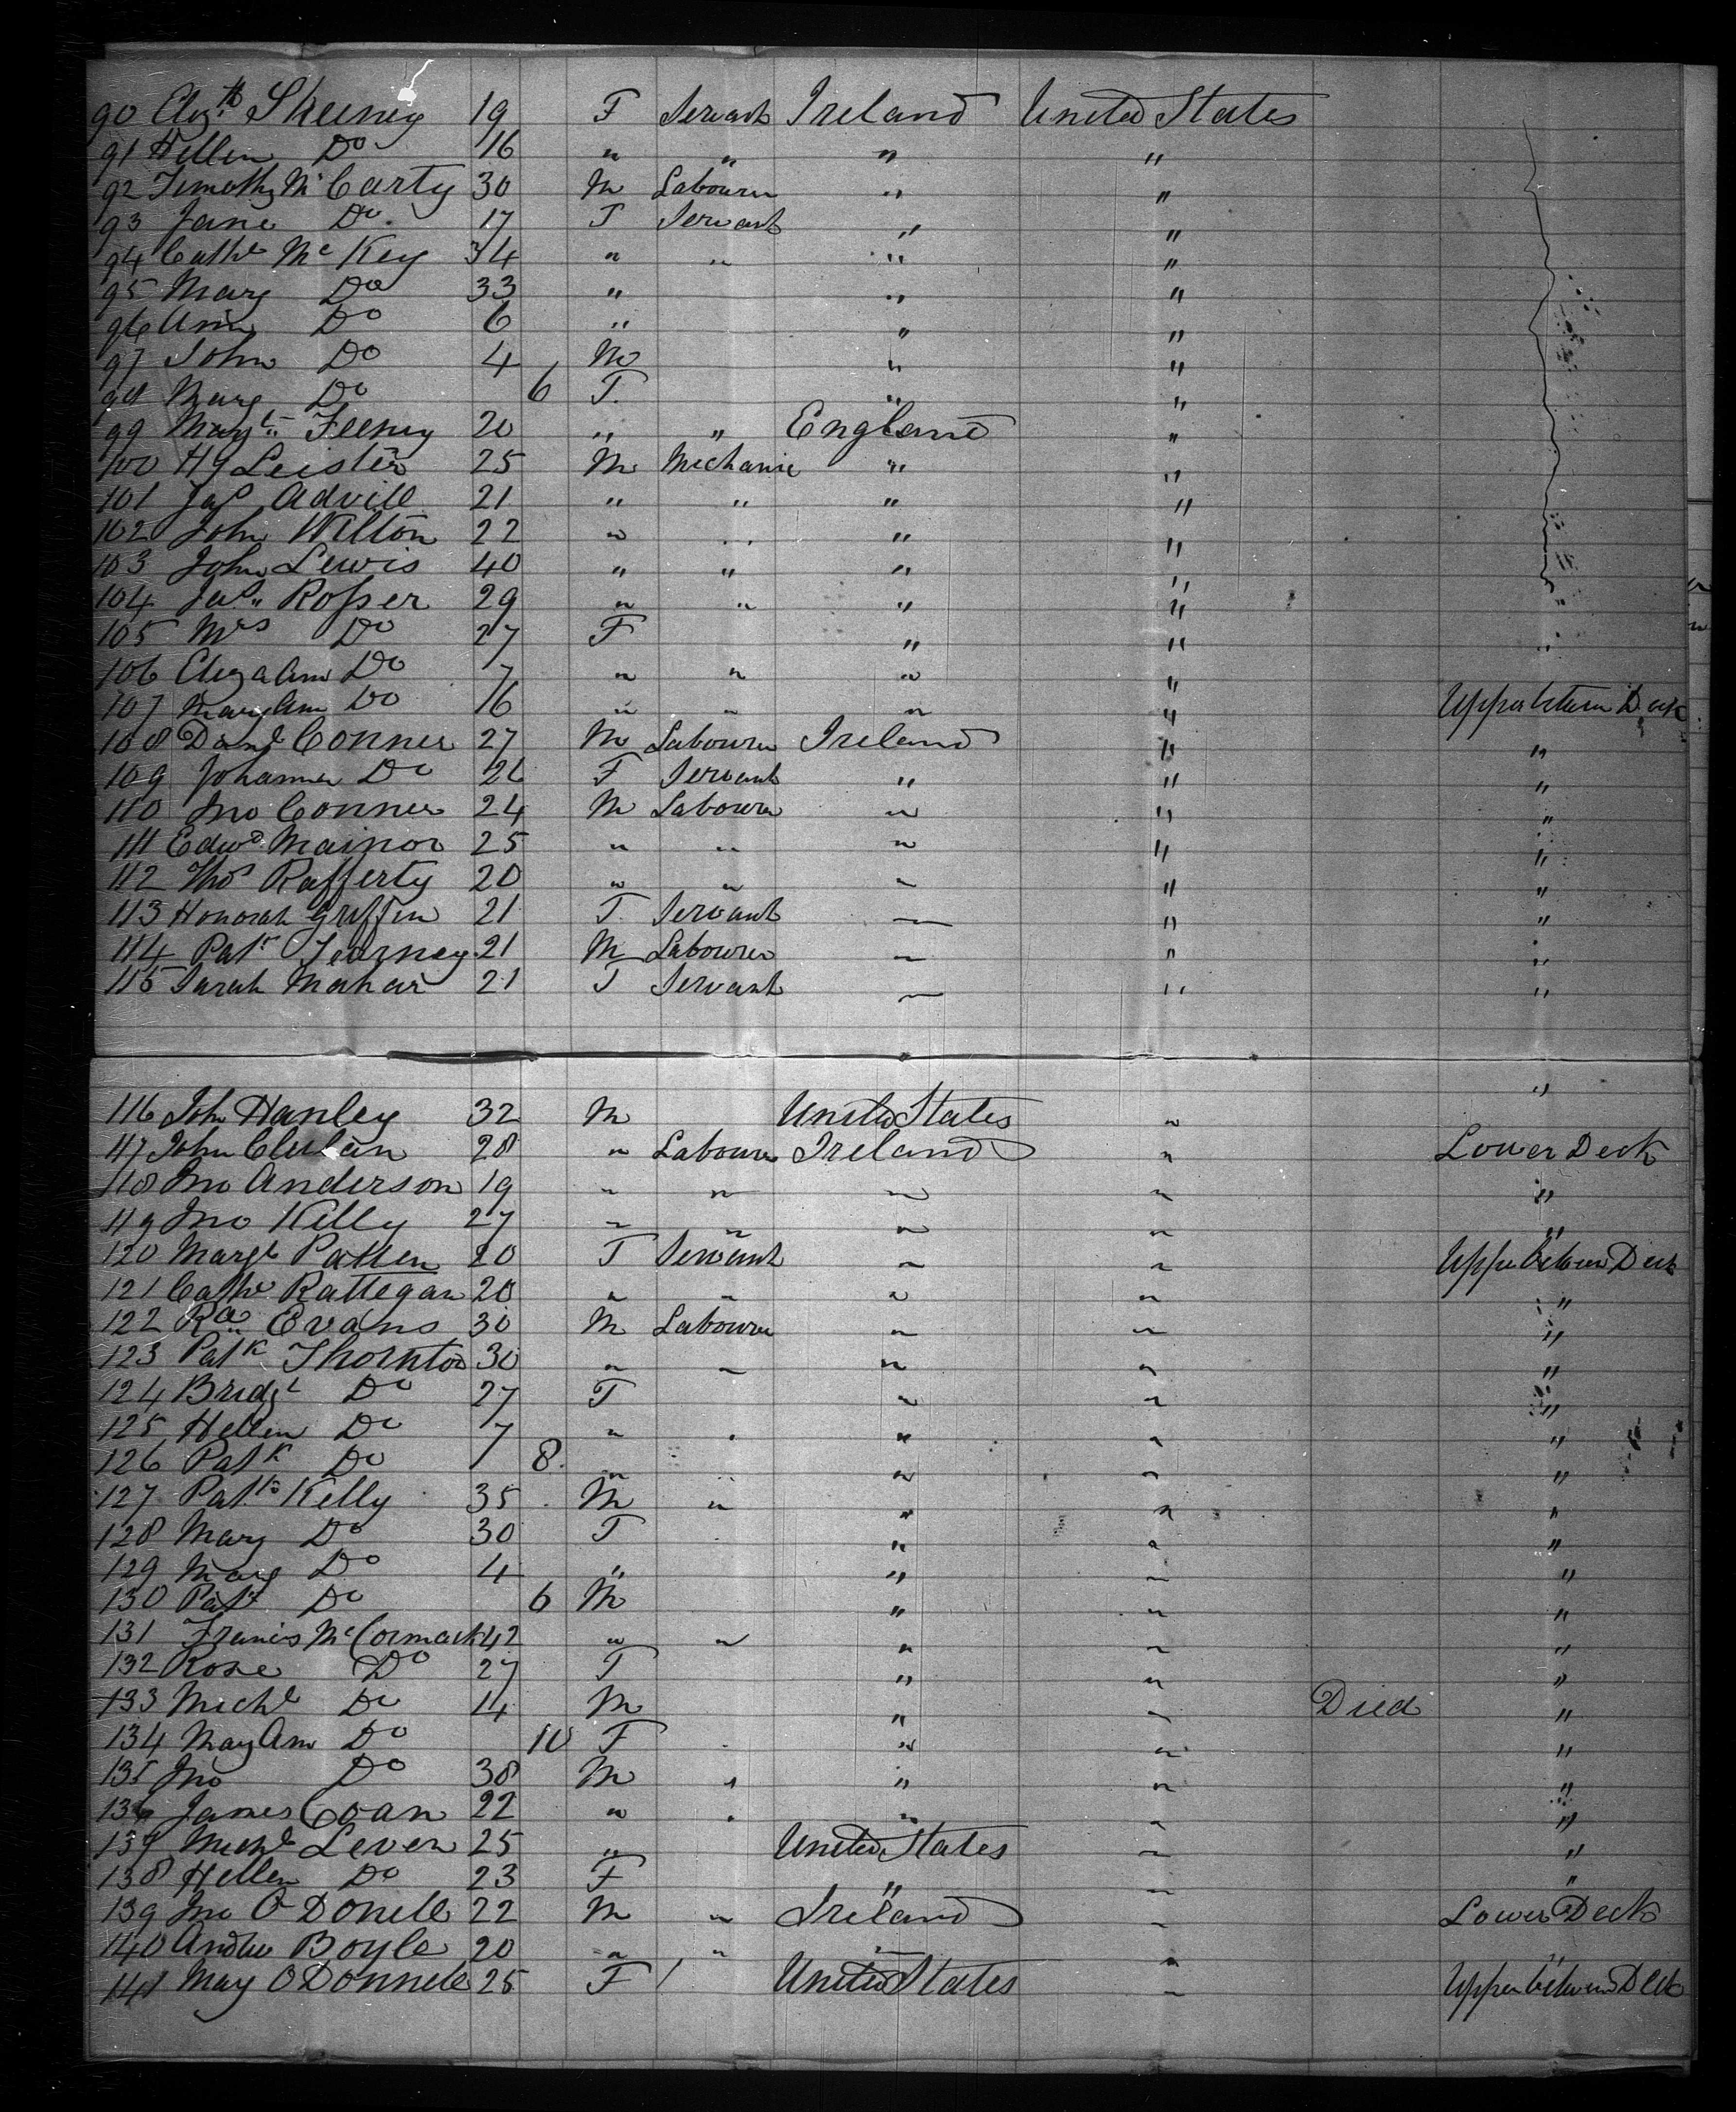 90 Elizth Sheeney 19 F Servant Ireland United States
91 Hellen Do 16 " " " "
92 Timothy McCarty 30 M Labourer " "
93 Jane Do 17 F Servant " "
94 Cathe McKey 34 " " " "
95 Mary Do 33 " " "
96 Ann Do 6 " " "
97 John Do 4 M " "
98 Mary Do 6 F " "
99 Margt Feeney 20 " " England "
100 Hy Leister 25 M Mechanic " "
101 Jas Advill 21 " " " "
102 John Wilton 22 " " " "
103 John Lewis 40 " " " "
104 Jas Rosser 29 " " " " "
105 Mrs Do 27 F " " "
106 Eliza Ann Do 7 " " " "
107 Mary Ann Do 16 " " " " Upper between Deck
108 Danl Conner 27 M Labourer Ireland " "
109 Johanna Do 26 F Servant " " "
110 Jno Conner 24 M Labourer " " "
111 Edwd Mainor 25 " " " " "
112 Thos Rafferty 20 " " " " "
113 Honorah Griffin 21 F Servant " " "
114 Patk Fearney 21 M Labourer " " "
115 Sarah Mahar 21 F Servant " " "
116 John Hanley 32 M United States " "
117 John 28 " Labourer Ireland " Lower Deck
118 Jno Anderson 19 " " " " "
119 Jno Kelly 27 " " " " "
120 Margt Patten 20 F Servant " " Upper between Deck
121 Cathe Rattegan 20 " " " " "
122 Evans 30 M Labourer " " "
123 Patk Thornton 30 " " " " "
124 Bridgt Do 27 F " " "
125 Hellen Do 7 " " " " "
126 Patk Do 8 " " " " "
127 Patk Kelly 35 M " " " "
128 Mary Do 30 F " " "
129 Mary Do 4 " " " "
130 Patk Do 6 M " " "
131 Francis McCormack 42 " " " " "
132 Rose Do 27 F " " "
133 Michl Do 14 M " " Died "
134 Mary Ann Do 10 F " " "
135 Jno Do 38 M " " " "
136 James Coan 22 " " " " "
137 Michl Leven 25 " United States " "
138 Hellen Do 23 F " " "
139 Jno O Donell 22 M " Ireland " Lower Deck
140 Andw Boyle 20 " " " " "
141 Mary O Donnell 25 F United States " Upper between Deck